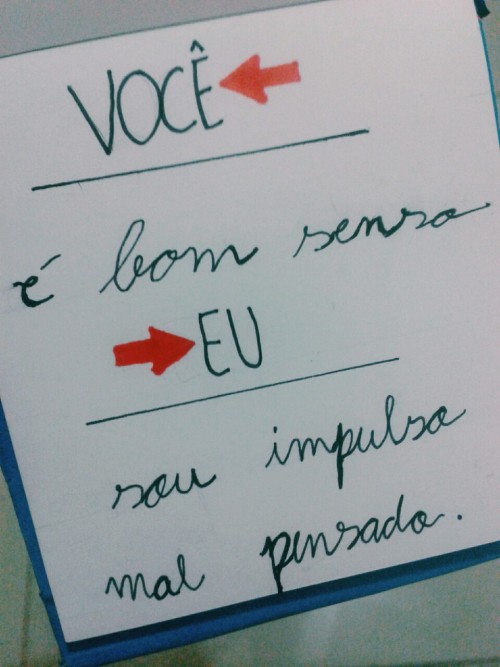 VOCÊ
é bom senso
EU
sou impulso
mal pensado.